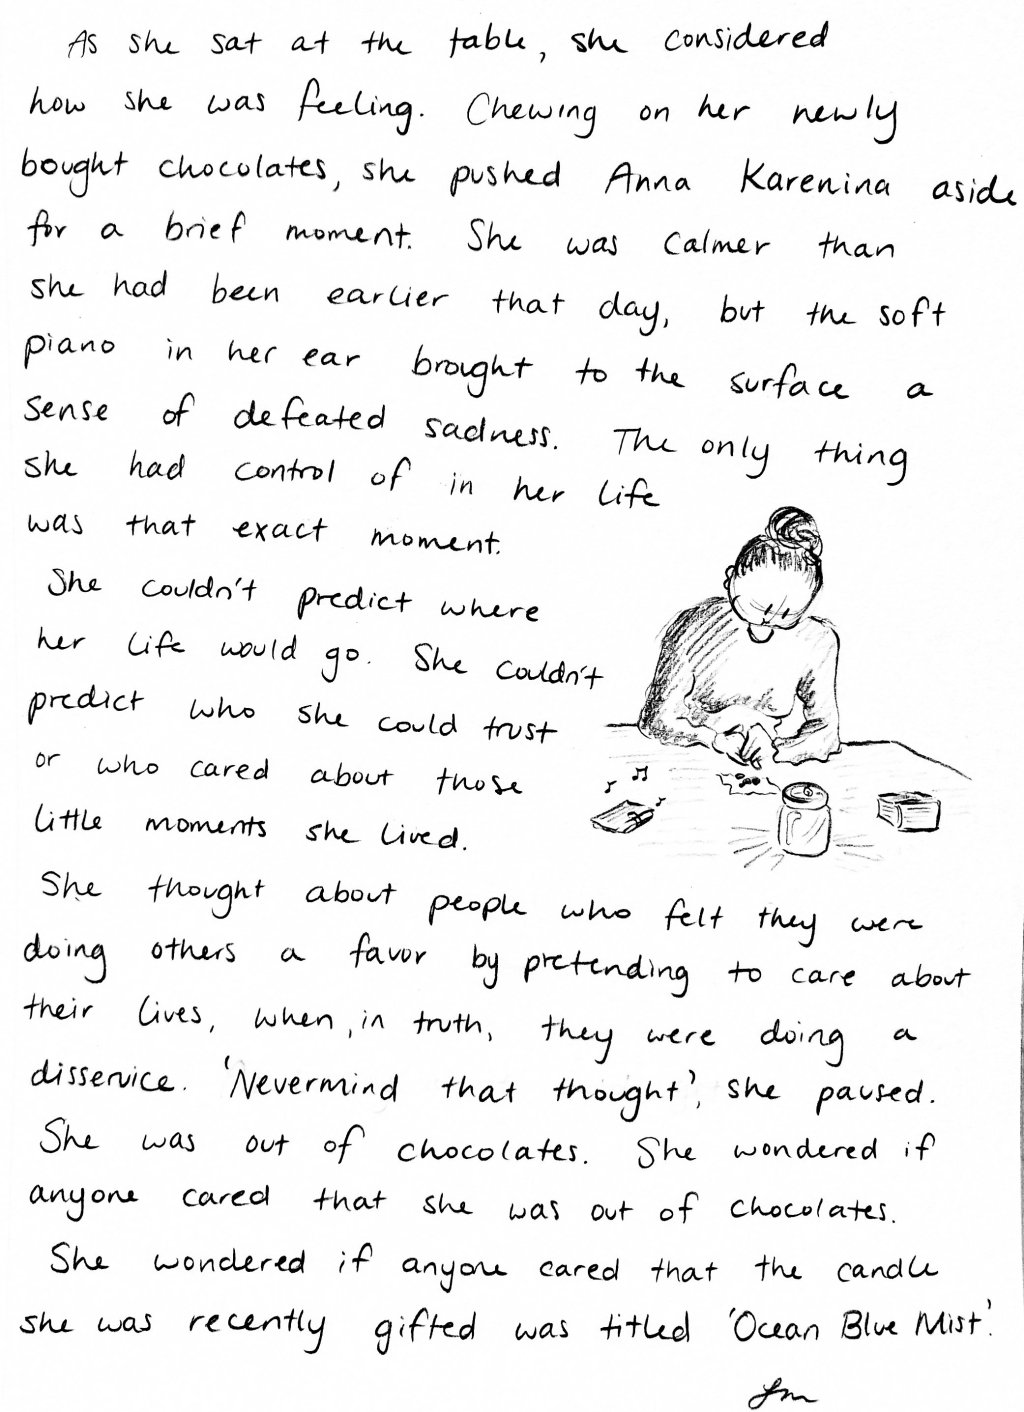 As she sat at the table, she considered
how she was feeling. Chewing on her newly
bought chocolates, she pushed Anna Karenina aside
for a brief moment. She was calmer than
she had been earlier that day, but the soft
piano in her ear brought to the surface a
sense of defeated sadness. The only thing
she had control of in her life
was that exact moment.
She couldn't predict where
her life would go. She couldn't
predict who she could trust
or who cared about those
little moments she lived.
She thought about people who felt they were
doing others a favor by pretending to care about
their lives, when, in truth, they were doing a
disservice. 'Nevermind that thought', she paused.
She was out of chocolates. She wondered if
anyone cared that she was out of chocolates.
She wondered if anyone cared that the candle
she was recently gifted was titled 'Ocean Blue Mist'.